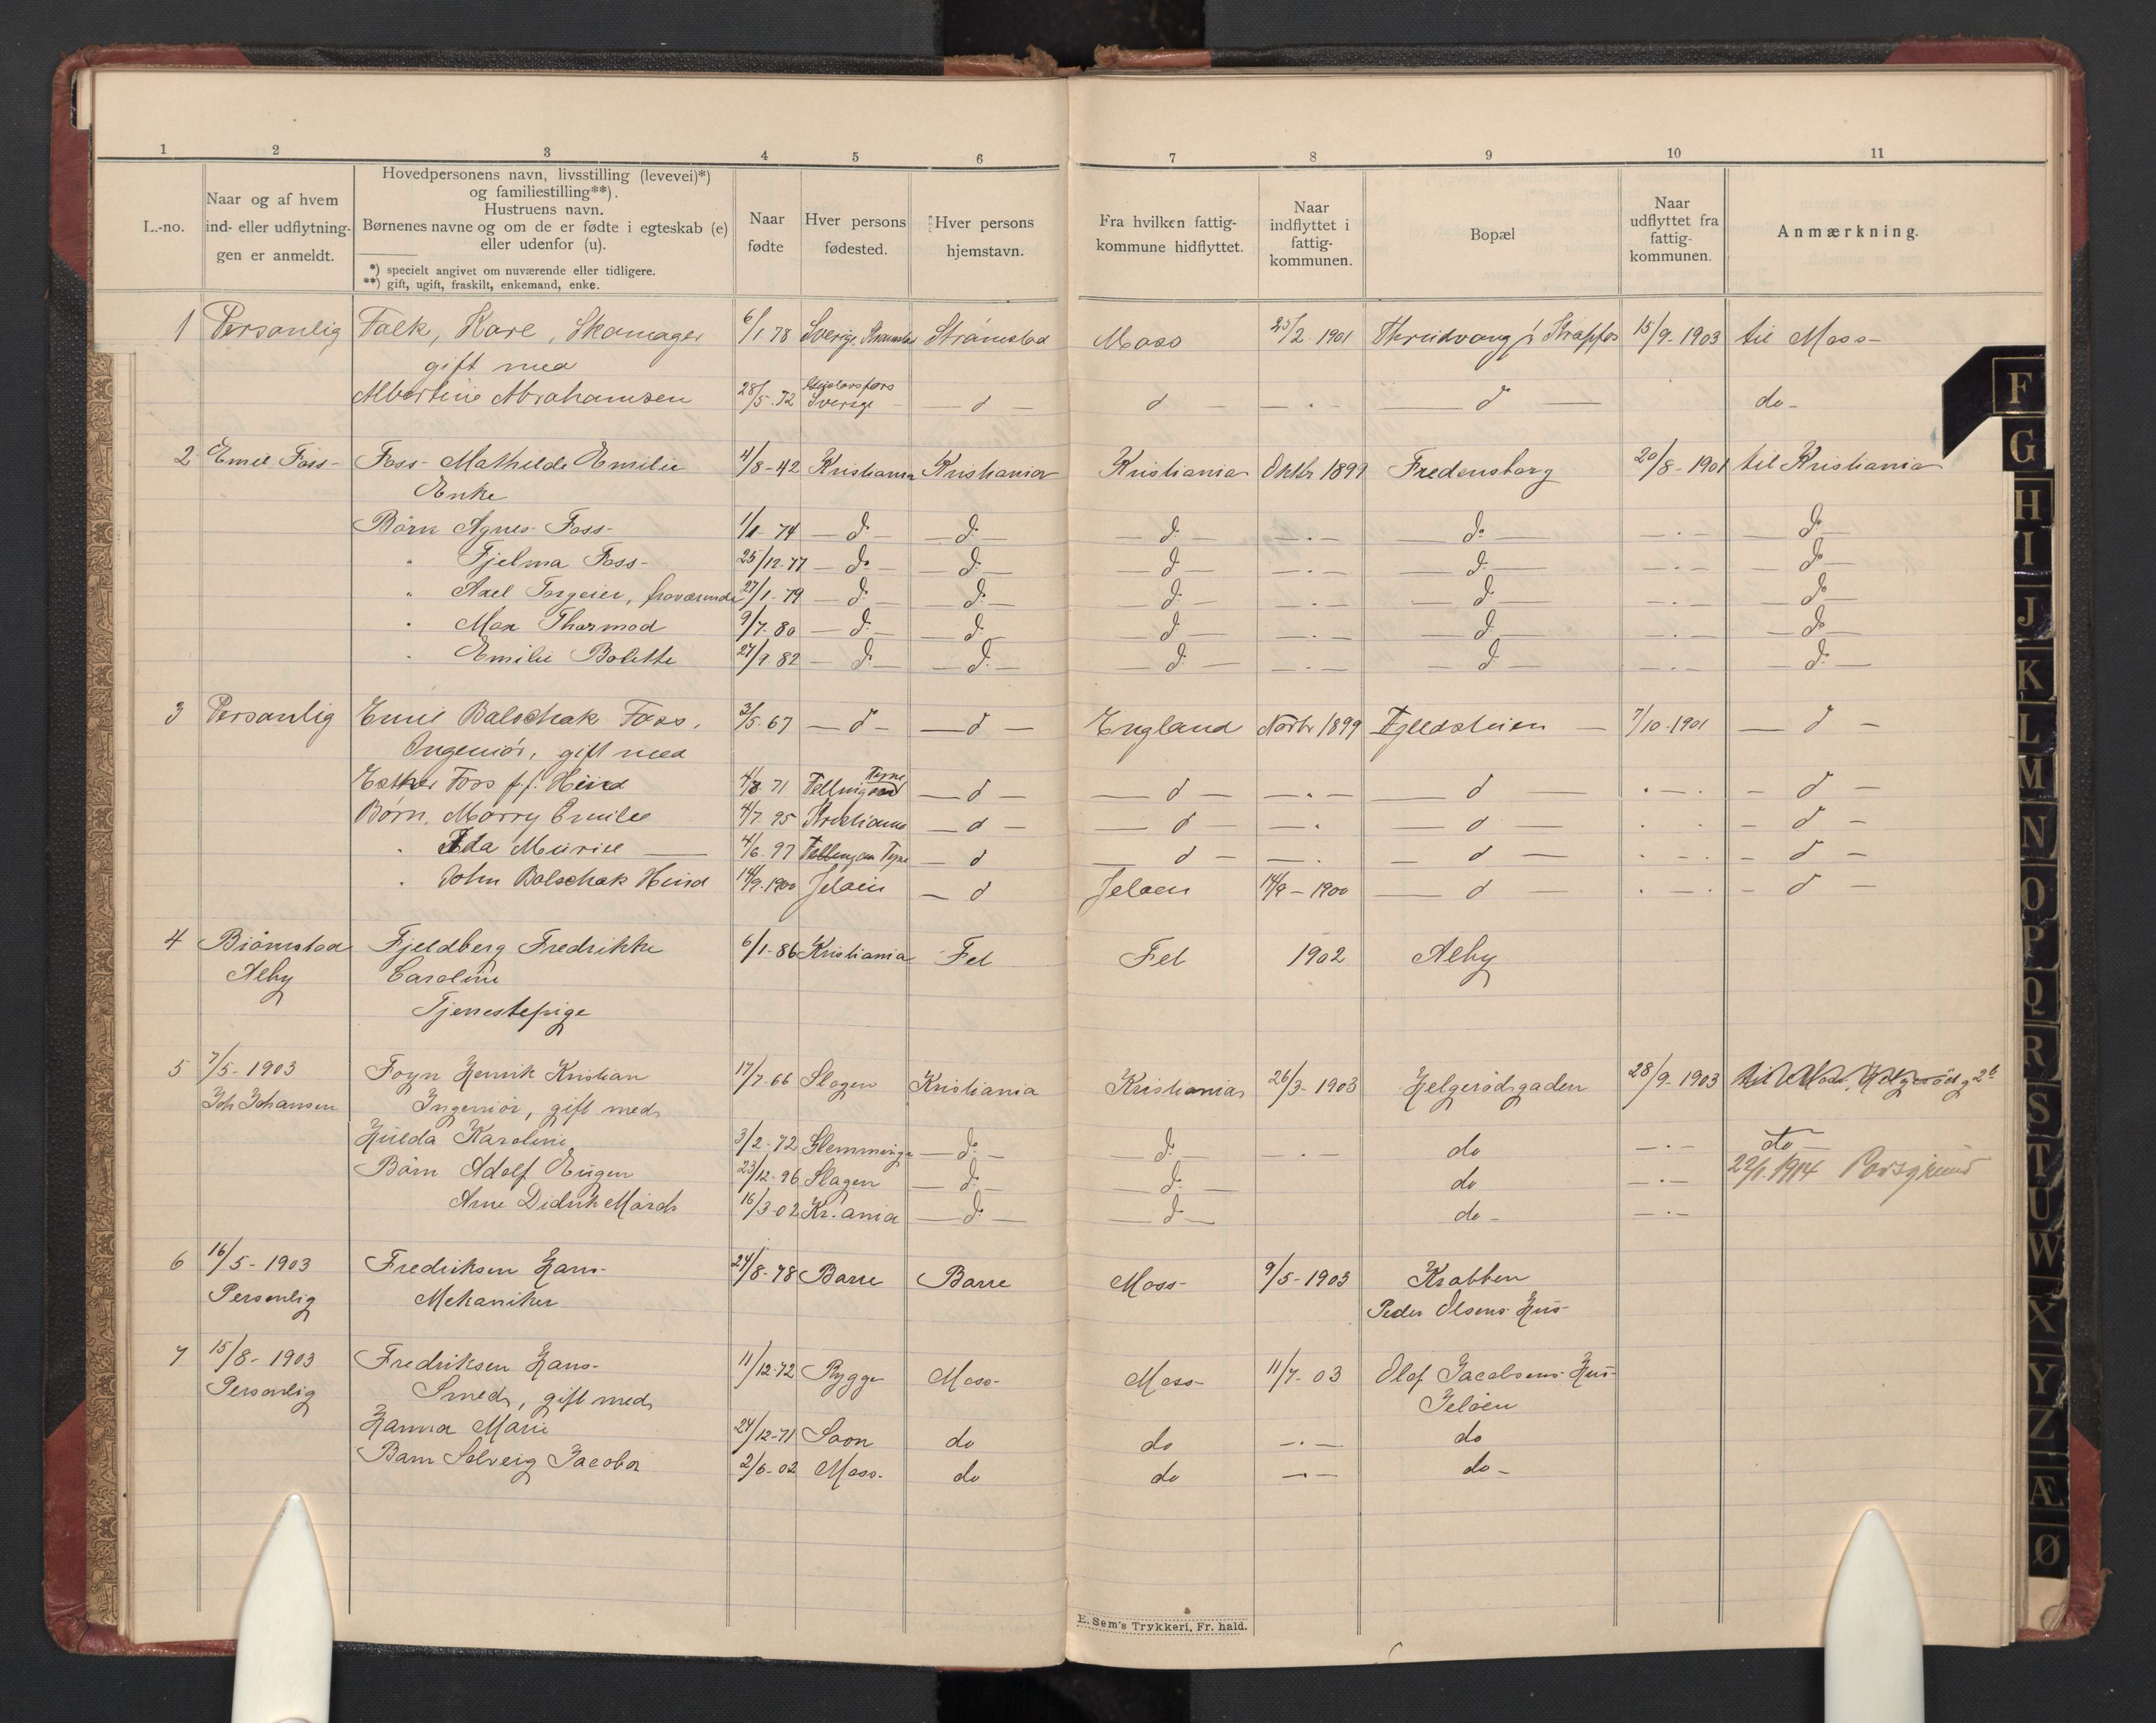 1 2 3 4 5 6 7 8 9 10 11
L.-no.
Naar og af hvem
ind- eller udflytnin-
gen er anmeldt.
Hovedpersonens navn, livsstilling (levevei)*)
og familiestilling**).
Hustruens navn.
Børnenes navne og om de er fødte i egteskab (e)
eller udenfor (u).
*) specielt angivet om nuværende eller tidligere.
**) gift, ugift, fraskilt, enkemand, enke.
Naar
fødte
Hver persons
fødested.
Hver persons
hjemstavn.
Fra hvilken fattig-
kommune hidflyttet.
Naar
indflyttet i
fattig-
kommunen.
Bopæl
Naar
udflyttet fra
fattig-
kommunen.
Anmærkning.
1 Personlig Falk, Kare, Skomager 6/1 78 Sverige Strömstad Moss 25/2 1901 15/9 - 1903 til Moss -
gift med
Albertine Abrahamsen 28/5. 72 Sverige - d - d - . - d do -
2 Emil Foss - Foss - Mathilde Emilie 4/8 - 42 Kristiania Kristiania Kristiania Oktbr 1899 Fredensborg 20/8 - 1901 til Kristiania
Enke
Børn Agnes Foss - 1/1 74 - do - - do - - do - - . - - do - - . - - do -
" Fjelma Foss - 25/12. 77 - do - - do - - do - - . - - do - - . - - do -
" Axel Torgeir, fraværende 27/1 - 79 - do - - do - - do - - . - - do - - . - - do -
" Max Thormod 9/7. 80 - do - - do - - do - - . - - do - - . - - do -
" Emilie Bolette 27/9 82 - do - - do - - do - - . - - do - - . - - do -
3 Personlig Emil Balschak Foss, 3/5. 67 - d - - d - England Novbr 1899 Fjeldsteien - 7/10 - 1901 - d -
Ingeniør, gift med
Esther Foss f. f. Hind 4/8. 71 Felling Tyne - d - - d - - . - - d - . - . - d -
Børn, Morry Emilie 4/7. 95 Kristiania - d - - d - - . - d - . . - d -
" Ida Muriel 4/6. 97 Felling on Tyne - d - d - - . - d - . - . - d -
" John Balschak Hind 14/9. 1900 Jeløen - d Jeløen 14/9 - 1900 - d - . - . - d -
4 Bjørnstad Fjeldberg Fredrikke 6/1 - 86 Kristiania Fet Fet 1902 Alby
Alby Caroline
Tjenestepige
5 7/5 - 1903 Foyn Henrik Kristian 17/7 - 66 Slagen Kristiania Kristiania 26/3 - 1903 Helgerødgaden 28/9 - 1903 til Moss, Helgerødg 26
Joh Johansen Ingeniør, gift med
Hilda Karoline 3/2 - 72 Glemminge - do - - do - - . - do - . - do
Børn Adolf Eugen 23/12 - 96 Slagen - do - - do - do - . - 22/1. 1914 Porsgrund
Arne Didrik March 16/3 - 02 Kr.ania - do - - do - do - - . -
6 16/5 - 1903 Fredriksen Hans - 24/8 - 78 Borre Borre Moss - 9/5 - 1903 Krabben
Personlig Mekaniker Peder Olsens Hus -
7 15/8 - 1903 Fredriksen Hans - 11/12 - 72 Rygge Moss - Moss - 11/7 - 03 Olof Jacobsens Hus
Personlig Smed, gift med Jeløen
Hanna Marie 24/12 - 71 Soon do do - . - do
Barn Solveig Jacoba 2/6 - 02 Moss - do do - . - do -
E. Sem's Trykkeri, Fr. hald.
F
G
H
I
J
K
L
M
N
O
P
Q
R
S
T
U
W
X
Y
Z
Æ
Ø